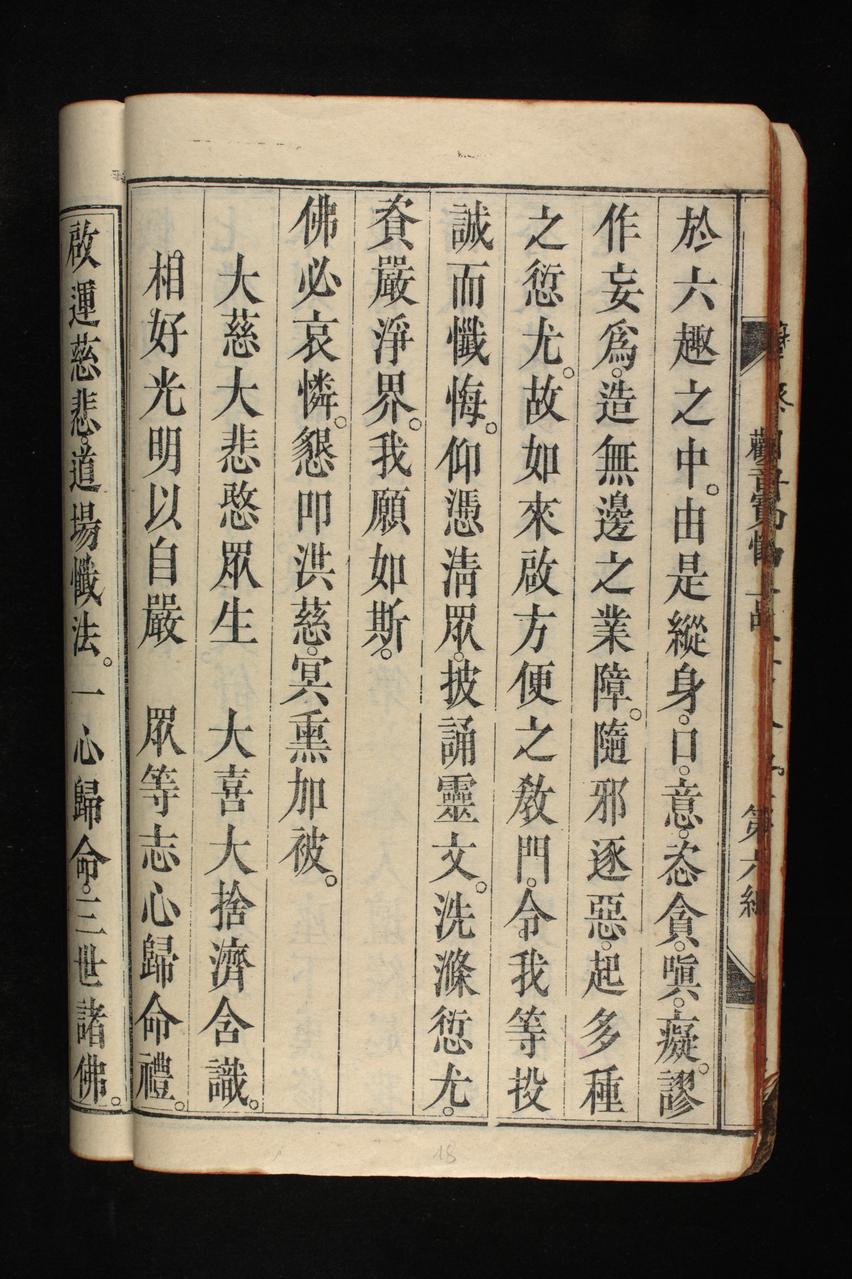 於六趣之中。由是縱身。口。意。恣貪。嗔。癡。謬
作妄為。造無邊之業障。隨邪逐惡。起多種
之愆尤。故如來啟方便之教門。令我等投
誠而懺悔。仰憑淸眾。披誦靈文。洗滌愆尤。
資嚴淨界。我願如斯。
佛必哀憐。懇叩洪慈。冥熏加被。
大慈大悲愍眾生　大喜大捨濟含識。
相好光明以自嚴　眾等志心歸命禮。
啟運慈悲。道場懺法。一心歸命。三世諸佛。
第六
18